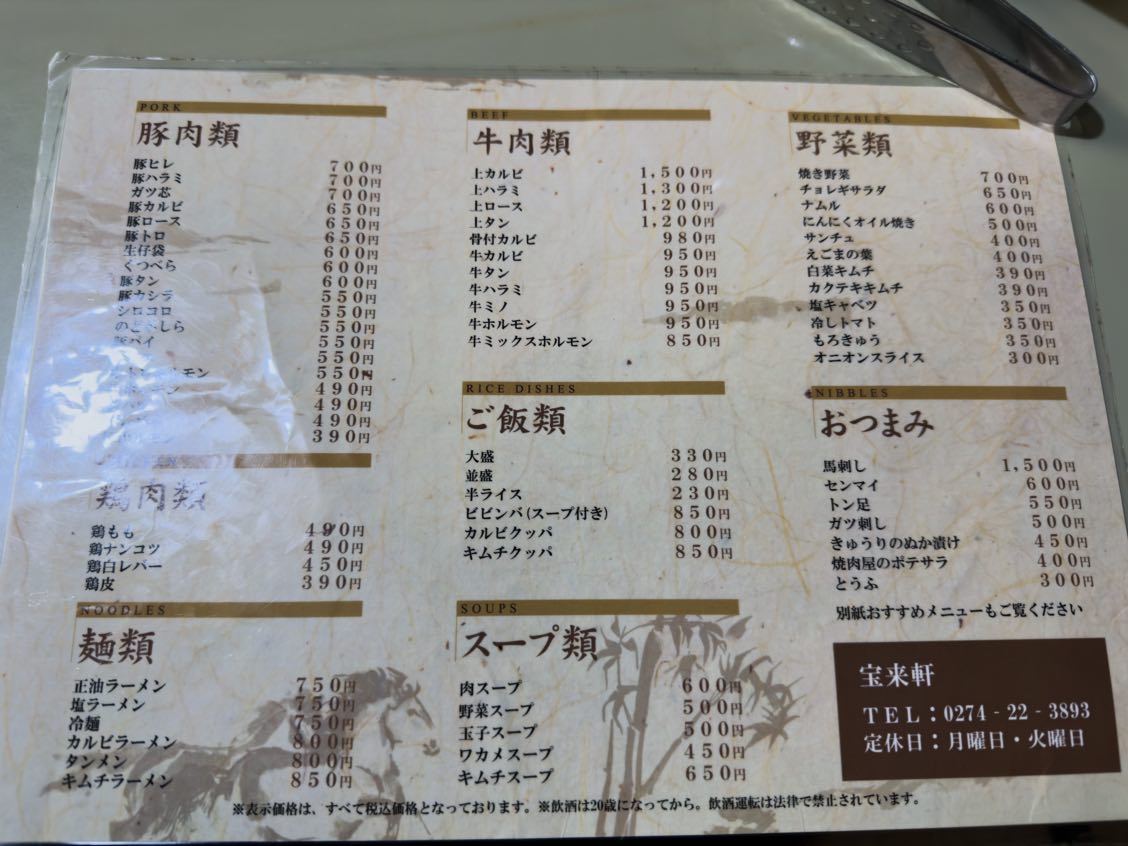 PORK
豚肉類
豚ヒレ 700円
豚ハラミ 700円
ガツ芯 700円
豚カルビ 650円
豚ロース 650円
豚トロ 650円
生仔袋 600円
くつべら 600円
豚タン 600円
豚カシラ 550円
シロコロ 550円
のどぶしら 550円
パイ 550円
550円
ルモン 550円
490円
490円
490円
390円
鶏肉類
鶏もも 490円
鶏ナンコツ 490円
鶏白レバー 450円
鶏皮 390円
NOODLES
麺類
正油ラーメン 750円
塩ラーメン 750円
冷麺 750円
カルビラーメン 800円
タンメン 800円
キムチラーメン 850円
BEEF
牛肉類
上カルビ 1,500円
上ハラミ 1,300円
上ロース 1,200円
上タン 1,200円
骨付カルビ 980円
牛カルビ 950円
牛タン 950円
牛ハラミ 950円
牛ミノ 950円
牛ホルモン 950円
牛ミックスホルモン 850円
RICE DISHES
ご飯類
大盛 330円
並盛 280円
半ライス 230円
ビビンバ(スープ付き) 850円
カルビクッパ 800円
キムチクッパ 850円
SOUPS
スープ類
肉スープ 600円
野菜スープ 500円
玉子スープ 500円
ワカメスープ 450円
キムチスープ 650円
VEGETABLES
野菜類
焼き野菜 700円
チョレギサラダ 650円
ナムル 600円
にんにくオイル焼き 500円
サンチュ 400円
えごまの葉 400円
白菜キムチ 390円
カクテキキムチ 390円
塩キャベツ 350円
冷しトマト 350円
もろきゅう 350円
オニオンスライス 300円
NIBBLES
おつまみ
馬刺し 1,500円
センマイ 600円
トン足 550円
ガツ刺し 500円
きゅうりのぬか漬け 450円
焼肉屋のポテサラ 400円
とうふ 300円
別紙おすすめメニューもご覧ください
宝来軒
TEL：0274-22-3893
定休日：月曜日・火曜日
※表示価格は、すべて税込価格となっております。※飲酒は20歳になってから。飲酒運転は法律で禁止されています。